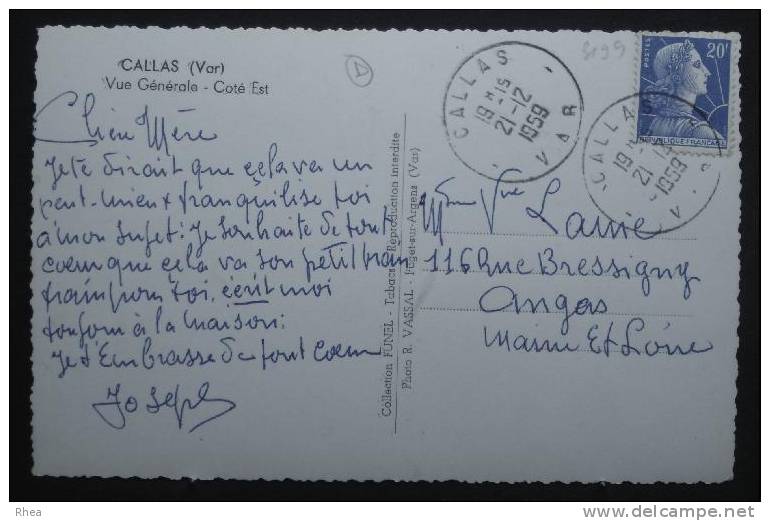 CALLAS (Var)
Vue Générale - Coté Est
Chère Mère
Je te dirait que cela va un
peut-mieux tranquilise toi
à mon sujet: Je souhaite de tout
cœur que cela va son petit train
train pour toi, écrit moi
toujour à la maison:
Je t'Embrasse de tout Cœur
Joseph
Collection FUNEL - Tabacs - Reproduction interdite
Photo R. VASSAL - Puget-sur-Argens (Var)
CALLAS
19 H 15
21-12
1959
VAR
CALLAS
19 H
21
1959
VA
POSTES
20F
REPUBLIQUE FRANÇAISE
Mme Vve
116 Rue Bressigny
Angas
Maine Et Loire
Rhea
delcampe.net